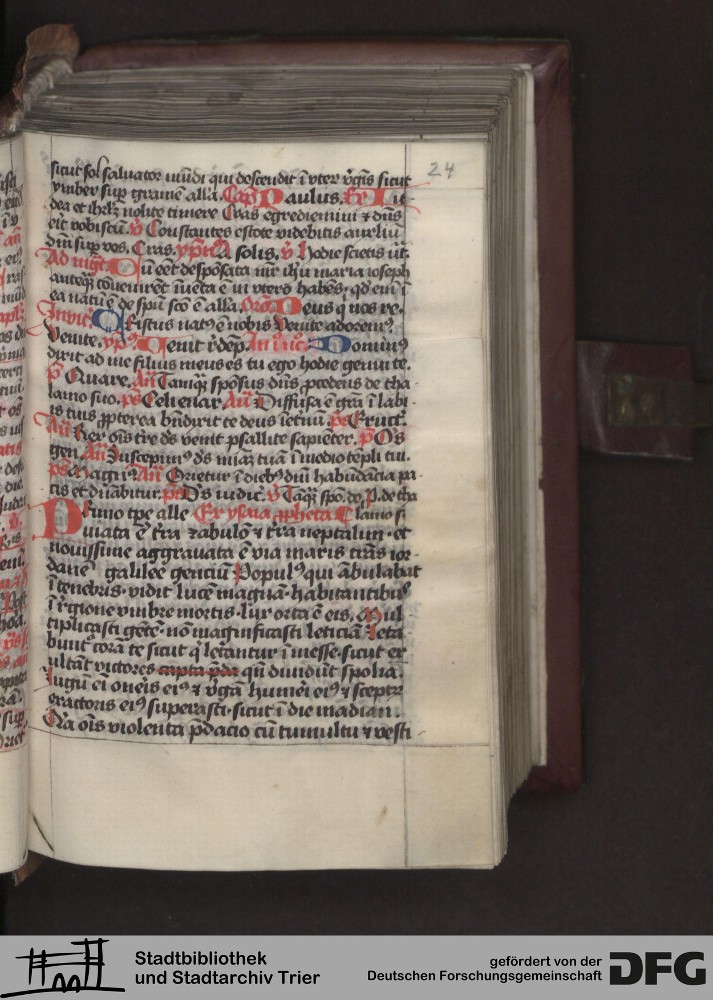 24
sicut sol saluator mūdi qui descendit ī vter v̾gīs sicut
ymber sup̱ gramē alla. Cap̄ Paulus. Rx Iu-
dea et ihrl̄m nolite timere Cras egrediemini ⁊ dn̄s
erit vobiscū. v̾ Constantes estote videbitis auxiliū
dn̄i sup̱ vos. Cras. yp̄n A solis. v̾ Hodie scietis
Ad mgt. Cū eēt despōsata mr̄ ihū maria ioseph
anteq̄ȝ cōuenirēt īuēta ē in vtero habēs. qd̓ em̄ ī
ea natū ē de spū scō ē alla. Orō Deus q̓ nos re.
Inuit. Cristus natꝰ ē nobis Venite adoremꝰ.
Venite. yp̄s. Ueni rēdēp. In Dominꝰ
dixit ad me filius meus es tu ego hodie genui te.
p̄s Quare. An̄ Tamq̄ȝ spōsus dn̄s p̱cedens de tha-
lamo suo. ps̄ Celi enar. An̄ Diffusa ē grā ī labi-
is tuis p̱pterea bn̄dixit te deus īet̓nū. ps̄ Eruct.
An̄ Rex oīs tr̄e ds̄ venit psallite sapiēter. p̄s Oēs
gen. An̄ Suscepimꝰ ds̄ miaȝ tuā ī medio tēpli tui.
ps̄ Magnꝰ An̄ Orietur ī diebꝰ dn̄i habūdācia pa-
cis et dn̄abitur. ps̄ Ds̄ iudic̄. v̾ Taq̄ȝ spō. do. p. de tha
Primo tpe alle Ex ysaia p̱pheta lamo si
uiata ē t̓ra zabulō ⁊ t̓ra neptalim. et
nouissime aggrauata ē via maris trās ior-
danē galilee genciū Popul̓ꝰ qui ābulabat
ī tenebris. vidit lucē magnā. habitantibꝰ
ī r̓gione vmbre mortis. lux orta ē eis. Mul
tiplicasti gētē. nō magnificasti leticiā Leta-
bunt̓ corā te sicut q̓ letantur ī messe. sicut ex
ultāt victores capta p̄da qn̄ diuidūt spolia.
Iugū em̄ oneris eiꝰ ⁊ v̾gā humeri eiꝰ ⁊ sceptrȝ
exactoris eiꝰ superasti. sicut ī die madian.
Q̄a oīs violenta p̄dacio cū tumultu ⁊ vesti
Stadtbibliothek
und Stadtarchiv Trier
gefördert von der
Deutschen Forschungsgemeinschaft
DFG